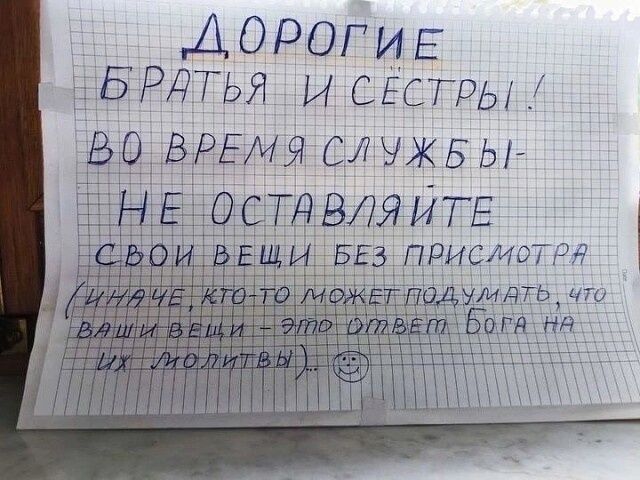 ДОРОГИЕ
БРАТЬЯ И СЁСТРЫ!
ВО ВРЕМЯ СЛУЖБЫ-
НЕ ОСТАВЛЯЙТЕ
СВОИ ВЕЩИ БЕЗ ПРИСМОТРА
(ИНАЧЕ, КТО-ТО МОЖЕТ ПОДУМАТЬ, ЧТО
ВАШИ ВЕЩИ - ЭТО ОТВЕТ БОГА НА
ИХ МОЛИТВЫ)..